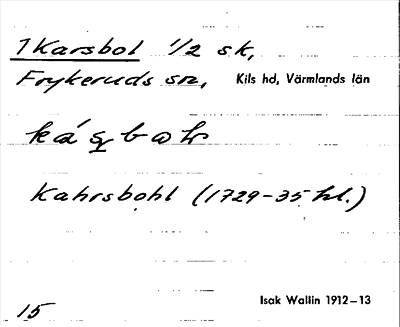 1 Karsbol 1/2 sk,
Frykeruds sn, Kils hd, Värmlands län
Kahrsbohl (1729-35 hl.)
15 Isak Wallin 1912-13